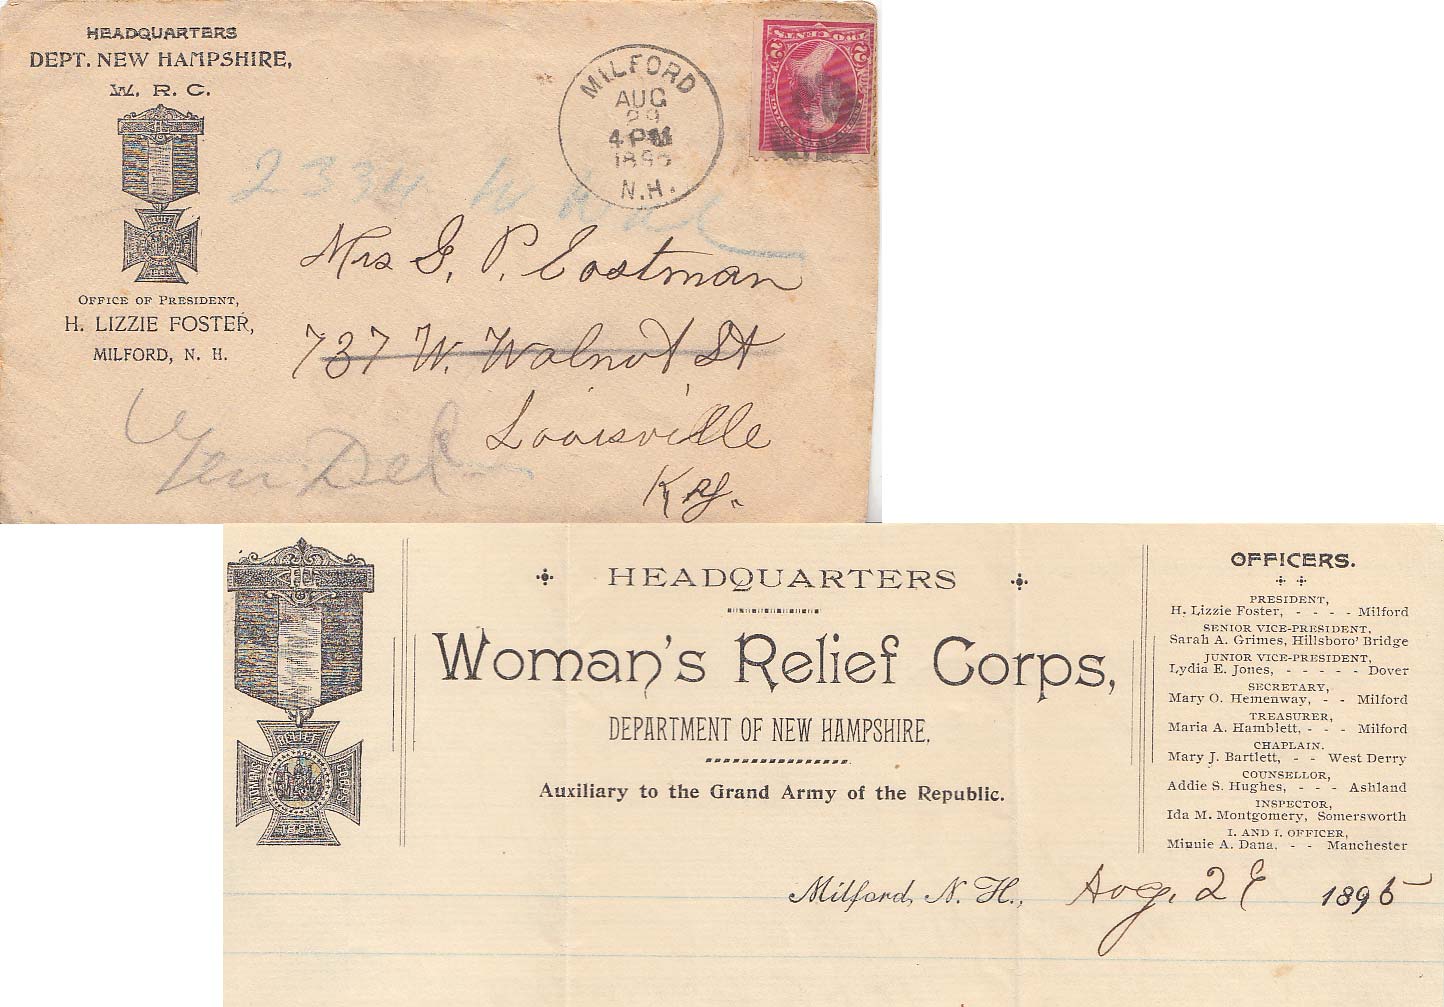 HEADQUARTERS
DEPT. NEW HAMPSHIRE,
W. R. C.
RELIEF
OFFICE OF PRESIDENT,
H. LIZZIE FOSTER,
MILFORD, N. H.
MILFORD
AUG
29
4 PM
1895
N.H.
2
2
2334 W
Mrs G. P. Eastman
737 W. Walnut St
Louisville
Ky.
Gen Del
HEADQUARTERS
Woman's Relief Corps,
DEPARTMENT OF NEW HAMPSHIRE.
Auxiliary to the Grand Army of the Republic.
WOMAN'S
RELIEF
CORPS
1883
OFFICERS.
PRESIDENT,
H. Lizzie Foster, - - - - Milford
SENIOR VICE-PRESIDENT,
Sarah A. Grimes, Hillsboro' Bridge
JUNIOR VICE-PRESIDENT,
Lydia E. Jones, - - - - - Dover
SECRETARY,
Mary O. Hemenway, - - Milford
TREASURER,
Maria A. Hamblett, - - - Milford
CHAPLAIN.
Mary J. Bartlett, - - West Derry
COUNSELLOR,
Addie S. Hughes, - - - Ashland
INSPECTOR,
Ida M. Montgomery, Somersworth
I. AND I. OFFICER,
Minnie A. Dana, - - Manchester
Milford, N. H., Aug. 29 1895